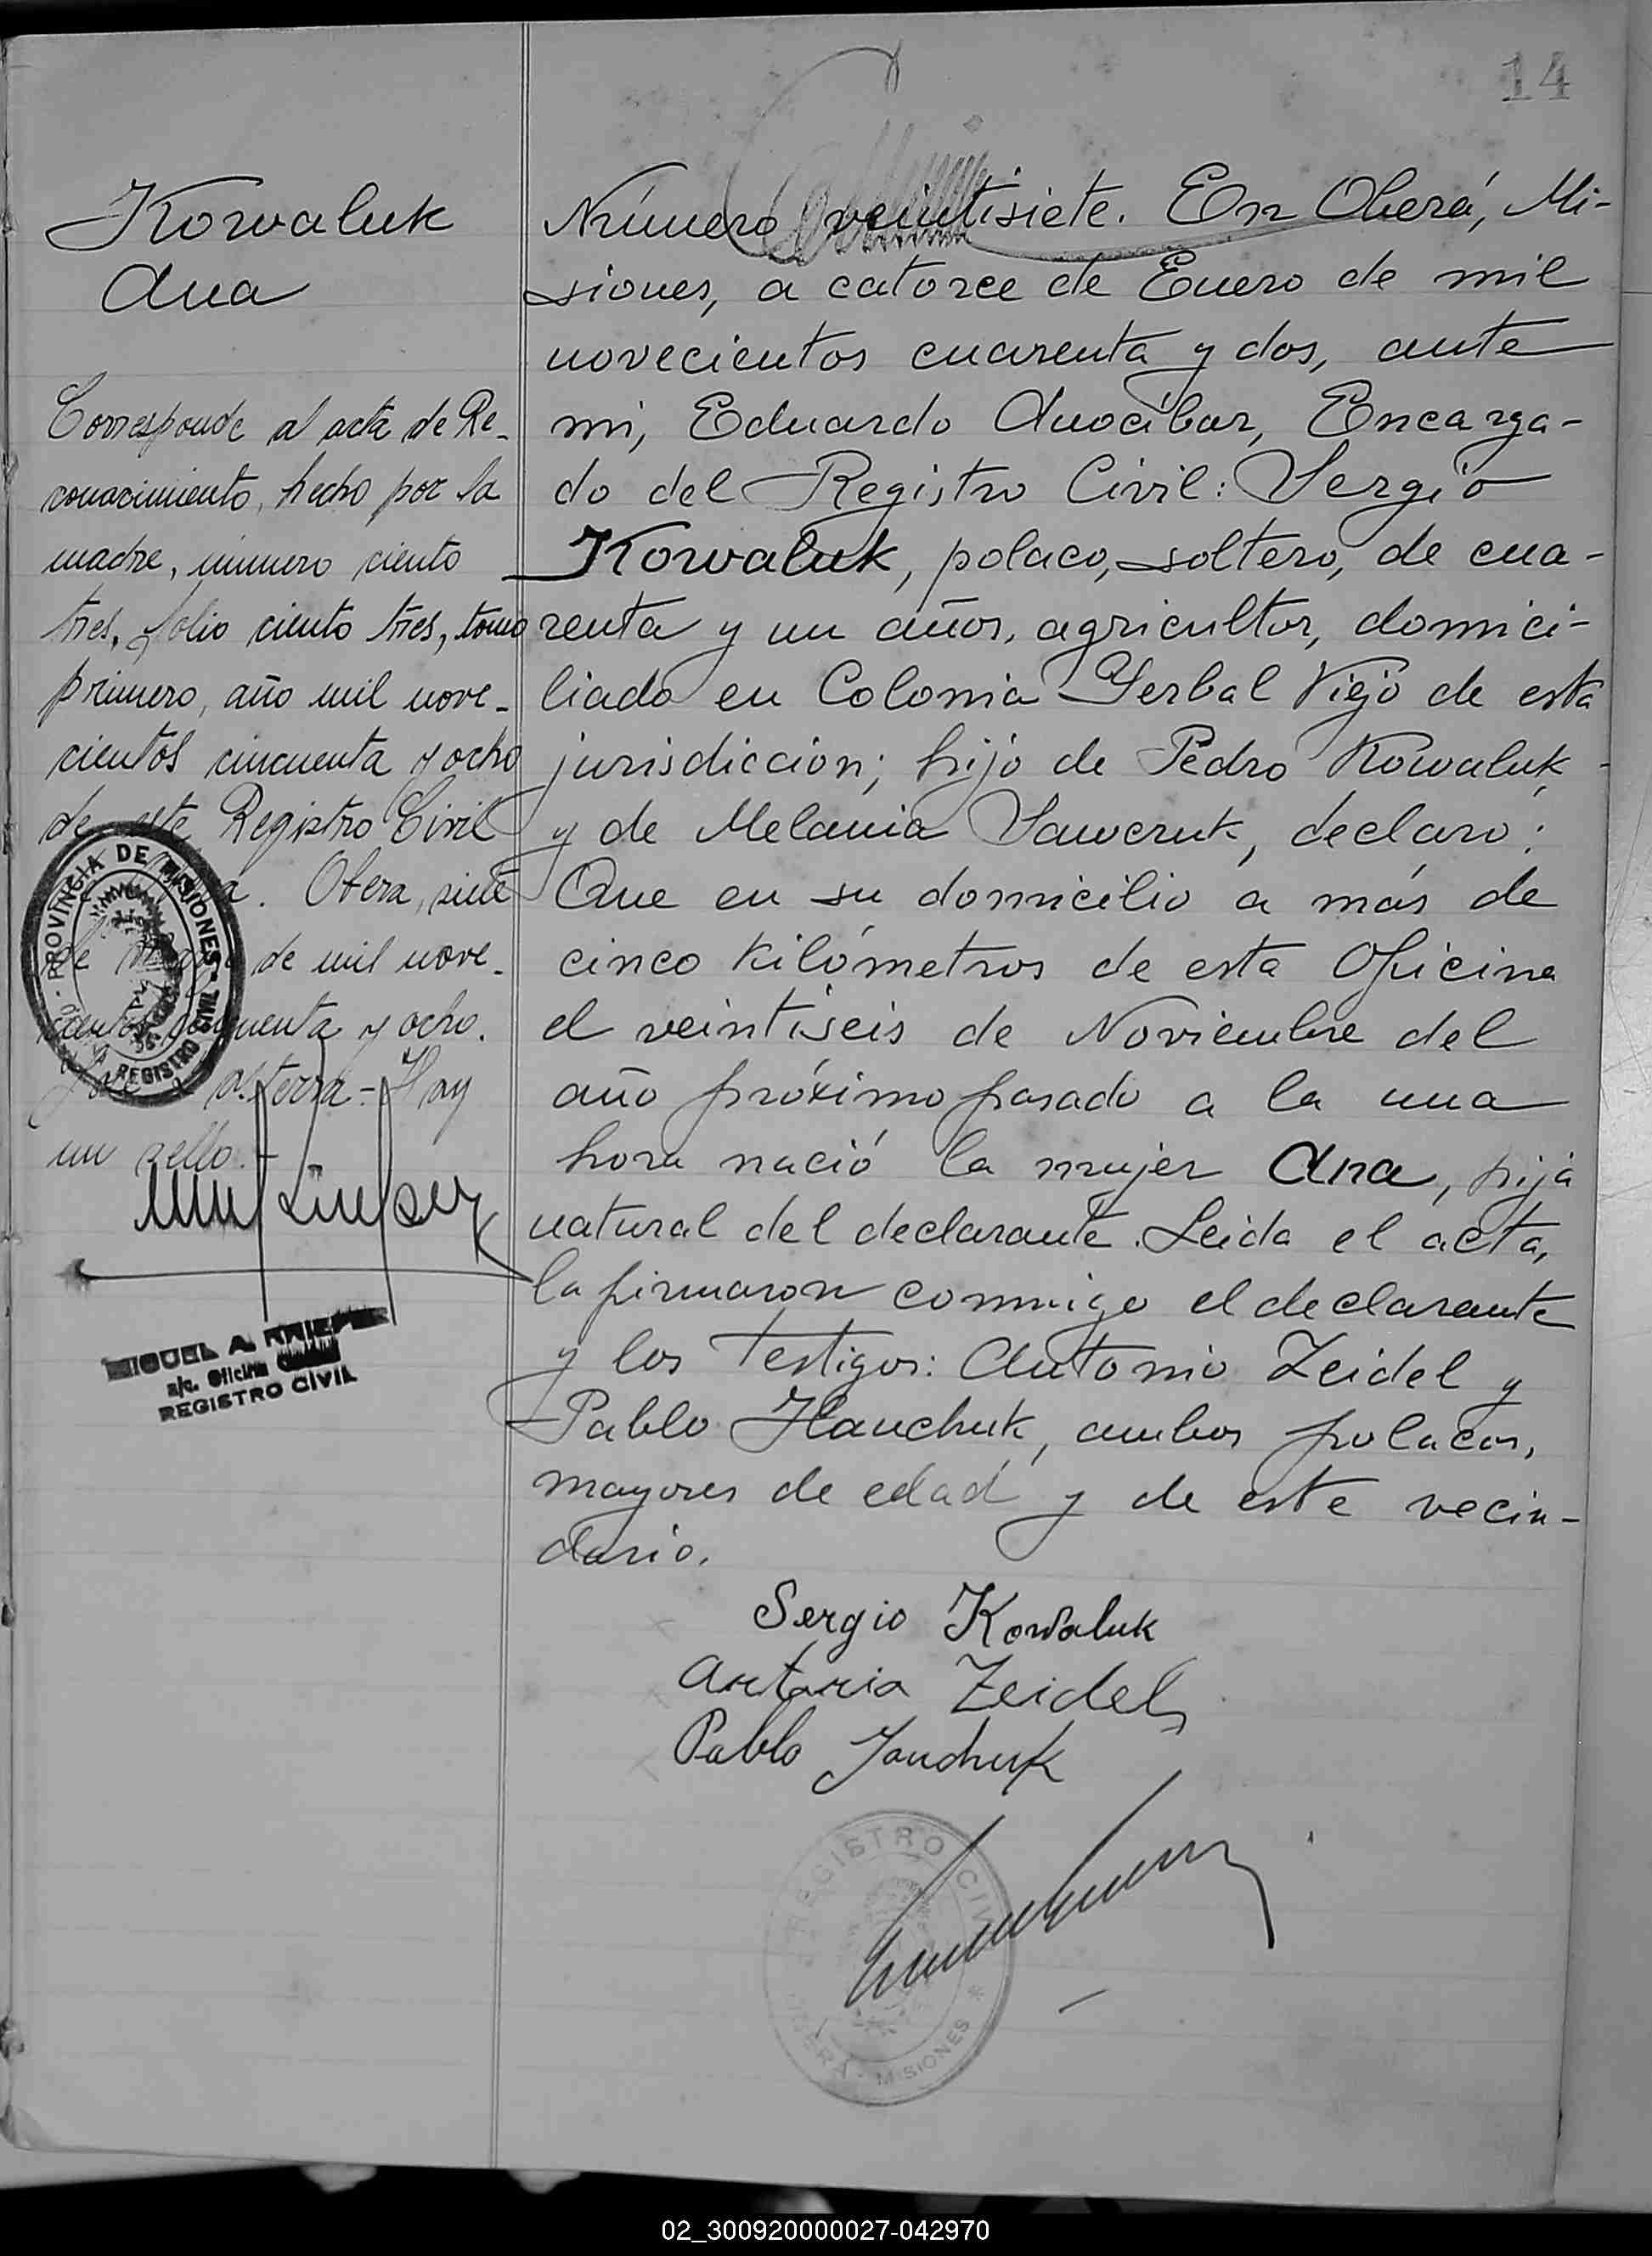 14
Kowaluk
Ana
Corresponde al acta de Re-
conocimiento, hecho por la
madre, número ciento
tres, folio ciento tres, tomo
primero, año mil nove-
cientos cincuenta y ocho
de este Registro Civil
Oberá, siete
de de mil nove-
cientos cincuenta y ocho.
Hay
un sello.-
PROVINCIA DE MISIONES
REGISTRO CIVIL
MIGUEL A.
a/c. Oficina
REGISTRO CIVIL
Número veintisiete. En Oberá, Mi-
siones, a catorce de Enero de mil
novecientos cuarenta y dos, ante
mi, Eduardo Anocíbar, Encarga-
do del Registro Civil: Sergio
Kowaluk, polaco, soltero, de cua-
renta y un años, agricultor, domici-
liado en Colonia Yerbal Viejo de esta
jurisdicción; hijo de Pedro Kowaluk
y de Melania Sawcruk, declaró:
Que en su domicilio a más de
cinco kilómetros de esta Oficina
el veintiseis de Noviembre del
año próximo pasado a la una
hora nació la mujer Ana, hija
natural del declarante. Leida el acta,
la firmaron conmigo el declarante
y los testigos: Antonio Zeidel y
Pablo Hanchuk, ambos polacos,
mayores de edad y de este vecin-
dario.
Sergio Kowaluk
Antonio Zeidel
Pablo Janchuk
REGISTRO CIVIL
OBERÁ - MISIONES
02_300920000027-042970